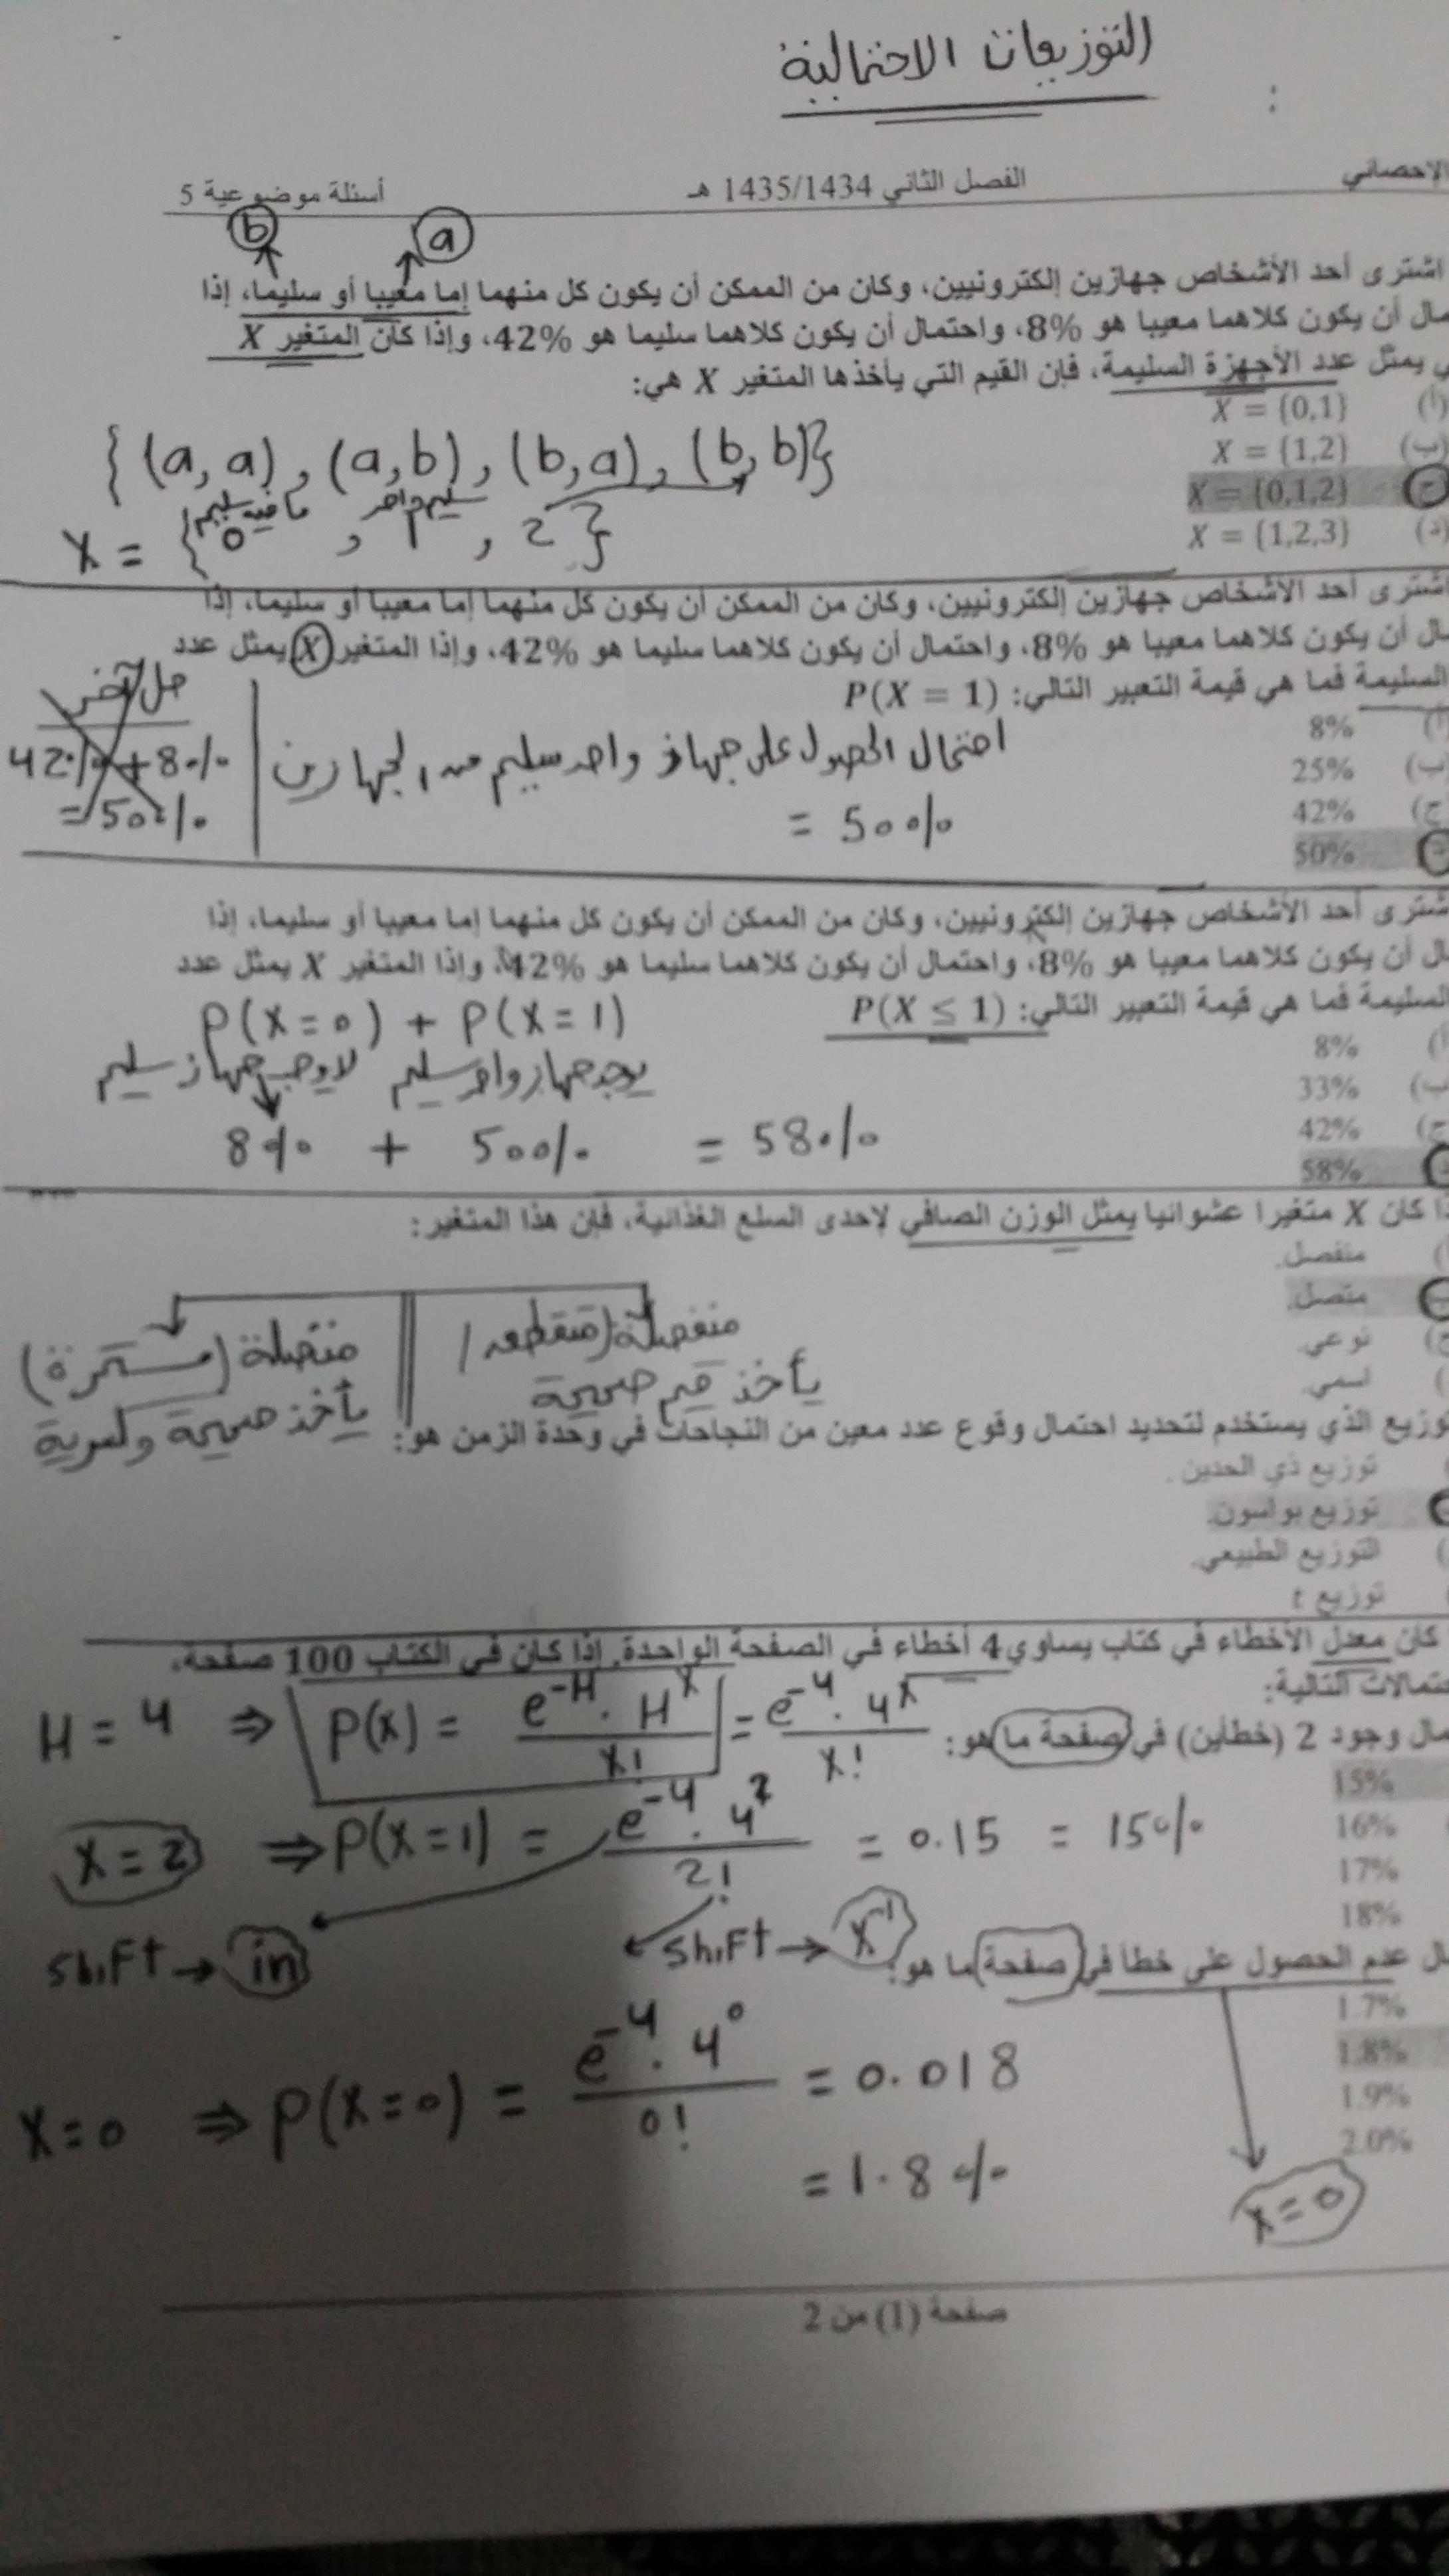 التوزيعات الاحتمالية
الإحصائي الفصل الثاني 1435/1434 هـ أسئلة موضوعية 5
b a
اشترى أحد الأشخاص جهازين إلكترونيين، وكان من الممكن أن يكون كل منهما إما معيبا أو سليما، إذا
أن يكون كلاهما معيبا هو 8%، واحتمال أن يكون كلاهما سليما هو 42%، وإذا كان المتغير X
يمثل عدد الأجهزة السليمة، فإن القيم التي يأخذها المتغير X هي:
(أ) X = {0,1}
(ب) X = {1,2}
(ج) X = {0,1,2}
(د) X = {1,2,3}
{(a,a), (a,b), (b,a), (b,b)}
ما فيه سليم سليم واحد
X = {0, 1, 2}
اشترى أحد الأشخاص جهازين إلكترونيين، وكان من الممكن أن يكون كل منهما إما معيبا أو سليما، إذا
أن يكون كلاهما معيبا هو 8%، واحتمال أن يكون كلاهما سليما هو 42%، وإذا المتغير X يمثل عدد
السليمة فما هي قيمة التعبير التالي: P(X = 1)
8%
(ب) 25%
(ج) 42%
50%
احتمال الحصول على جهاز واحد سليم من الجهازين
= 50%
حل آخر
42% + 8%
= 50%
اشترى أحد الأشخاص جهازين إلكترونيين، وكان من الممكن أن يكون كل منهما إما معيبا أو سليما، إذا
أن يكون كلاهما معيبا هو 8%، واحتمال أن يكون كلاهما سليما هو 42%، وإذا المتغير X يمثل عدد
السليمة فما هي قيمة التعبير التالي: P(X ≤ 1)
8%
33%
42%
58%
P(X=0) + P(X=1)
يوجد جهاز واحد سليم لا يوجد جهاز سليم
8% + 50% = 58%
كان X متغيرا عشوائيا يمثل الوزن الصافي لإحدى السلع الغذائية، فإن هذا المتغير:
منفصل.
متصل.
نوعي.
اسمي.
منفصلة (متقطعه) متصلة (مستمرة)
يأخذ قيم صحيحة يأخذ صحيحة وكسرية
التوزيع الذي يستخدم لتحديد احتمال وقوع عدد معين من النجاحات في وحدة الزمن هو:
توزيع ذي الحدين.
توزيع بواسون.
التوزيع الطبيعي.
توزيع t
كان معدل الأخطاء في كتاب يساوي 4 أخطاء في الصفحة الواحدة. إذا كان في الكتاب 100 صفحة،
التالية:
وجود 2 (خطأين) في صفحة ما هو:
15%
16%
17%
18%
M = 4 ⇒ P(x) = e^-M . M^x / x! = e^-4 . 4^x / x!
x = 2 ⇒ P(x=1) = e^-4 . 4^2 / 2! = 0.15 = 15%
shift → in shift → x^-1
عدم الحصول على خطأ في صفحة ما هو:
1.7%
1.8%
1.9%
2.0%
x=0 ⇒ P(x=0) = e^-4 . 4^0 / 0! = 0.018
= 1.8%
x=0
صفحة (1) من 2